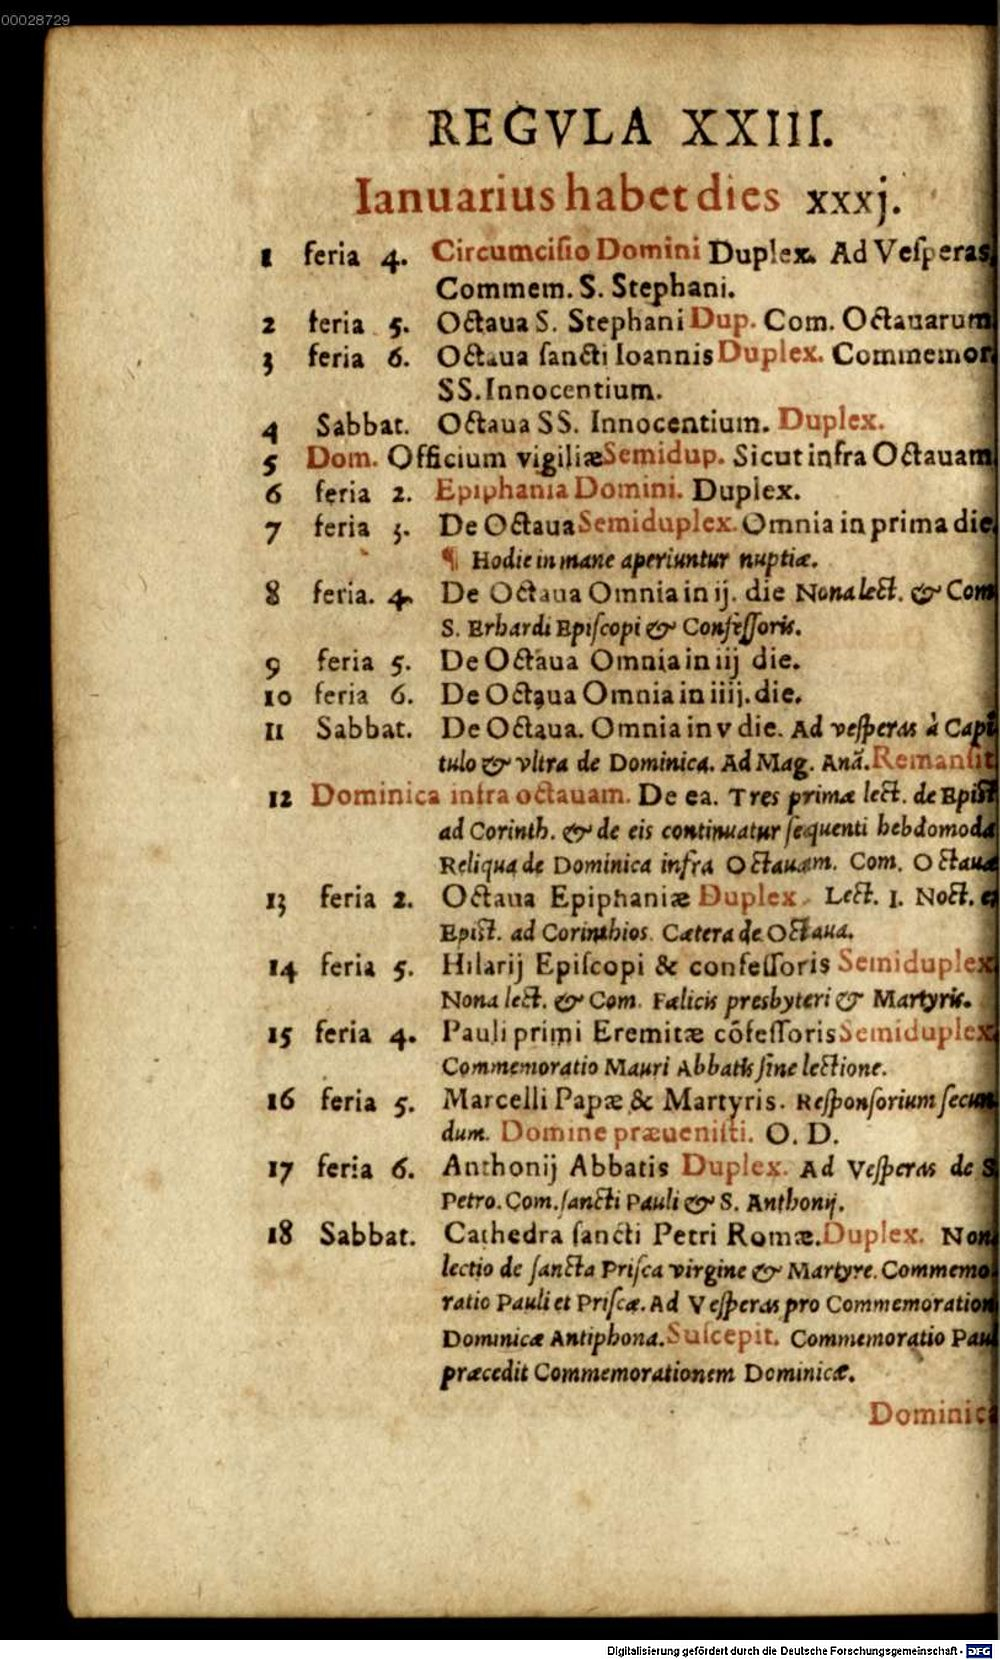 00028729
REGVLA XXIII.
Ianuarius habet dies xxxj.
1 feria 4. Circumcisio Domini Duplex. Ad Vesperas
Commem. S. Stephani.
2 feria 5. Octaua S. Stephani Dup. Com. Octauarum
3 feria 6. Octaua sancti Ioannis Duplex. Commemor
SS. Innocentium.
4 Sabbat. Octaua SS. Innocentium. Duplex.
5 Dom. Officium vigiliæ Semidup. Sicut infra Octauam
6 feria 2. Epiphania Domini. Duplex.
7 feria 3. De Octaua Semiduplex. Omnia in prima die
¶ Hodie in mane aperiuntur nuptiæ.
8 feria. 4. De Octaua Omnia in ij. die Nona lect. & Com
S. Erhardi Episcopi & Confessoris.
9 feria 5. De Octaua Omnia in iij die.
10 feria 6. De Octaua Omnia in iiij. die.
11 Sabbat. De Octaua. Omnia in v die. Ad vesperas à Capi
tulo & vltra de Dominica. Ad Mag. Anã. Remansit
12 Dominica infra octauam. De ea. Tres primæ lect. de Epist
ad Corinth. & de eis continuatur sequenti hebdomoda
Reliqua de Dominica infra Octauam. Com. Octauæ
13 feria 2. Octaua Epiphaniæ Duplex. Lect. 1. Noct. e
Epist. ad Corinthios. Cætera de Octaua.
14 feria 5. Hilarij Episcopi & confessoris Semiduplex
Nona lect. & Com. Fælicis presbyteri & Martyris.
15 feria 4. Pauli primi Eremitæ cõfessoris Semiduplex
Commemoratio Mauri Abbatis sine lectione.
16 feria 5. Marcelli Papæ & Martyris. Responsorium secun
dum. Domine præuenisti. O. D.
17 feria 6. Anthonij Abbatis Duplex. Ad Vesperas de S
Petro. Com. sancti Pauli & S. Anthonij.
18 Sabbat. Cathedra sancti Petri Romæ. Duplex. Non
lectio de sancta Prisca virgine & Martyre. Commemo
ratio Pauli et Priscæ. Ad Vesperas pro Commemoration
Dominicæ Antiphona. Suscepit. Commemoratio Pau
præcedit Commemorationem Dominicæ.
Dominica
Digitalisierung gefördert durch die Deutsche Forschungsgemeinschaft - DFG